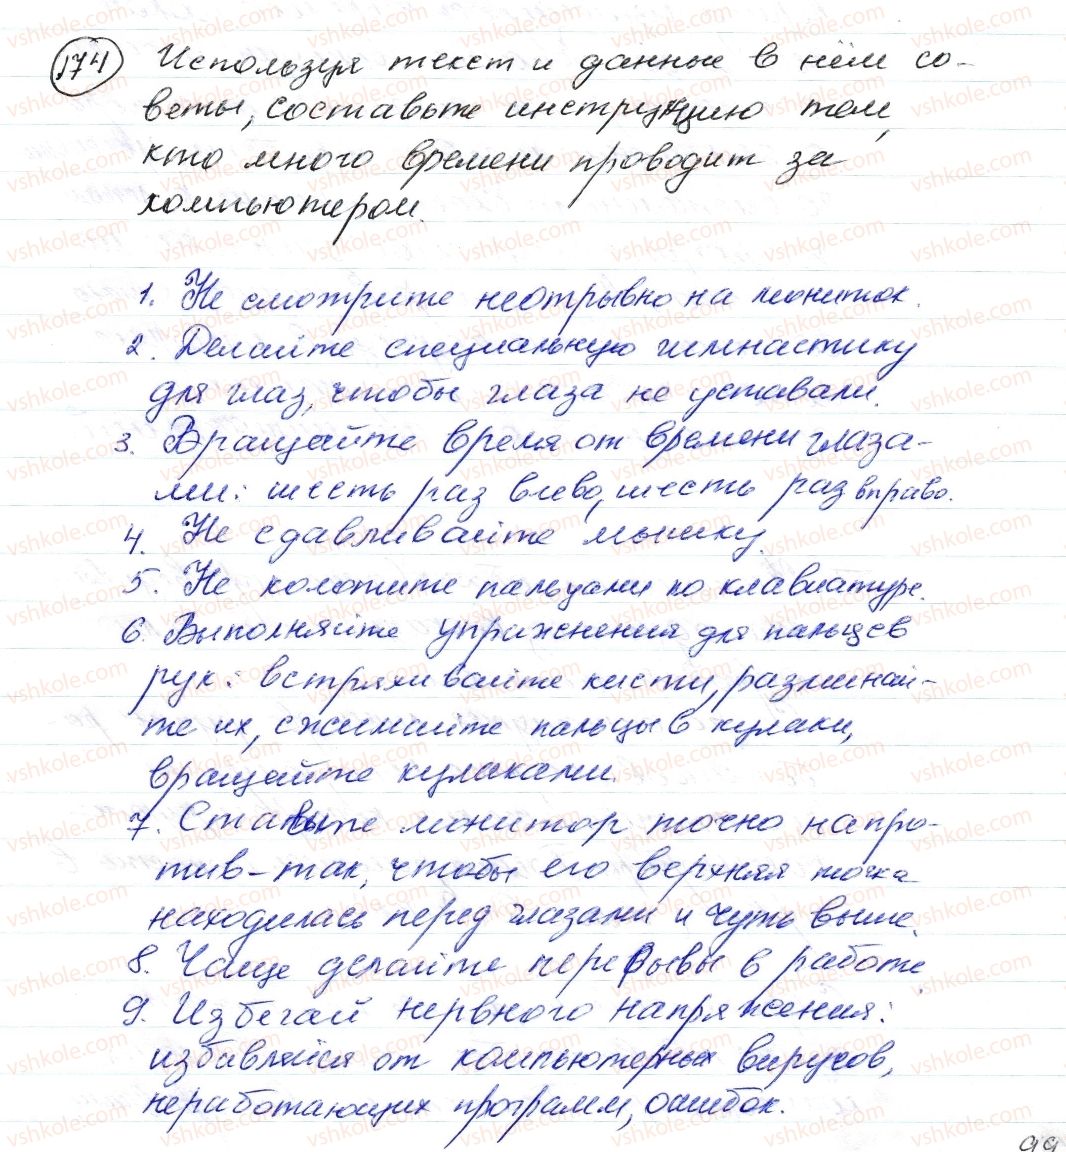 174 Используя текст и данные в нём со-
веты, составьте инструкцию тем,
кто много времени проводит за
компьютером.
1. Не смотрите неотрывно на мониток.
2. Делайте специальную гимнастику
для глаз, чтобы глаза не уставали.
3. Вращайте время от времени глаза-
ми: шесть раз влево, шесть раз вправо.
4. Не сдавливайте мышку.
5. Не колотите пальцами по клавиатуре.
6. Выполняйте упражнения для пальцев
рук: встряхивайте кисти, разминай-
те их, сжимайте пальцы в кулаки,
вращайте кулаками.
7. Ставьте монитор точно напро-
тив – так, чтобы его верхняя точка
находилась перед глазами и чуть выше.
8. Чаще делайте перерывы в работе.
9. Избегай нервного напряжения:
избавляйся от компьютерных вирусов,
неработающих программ, ошибок.
99